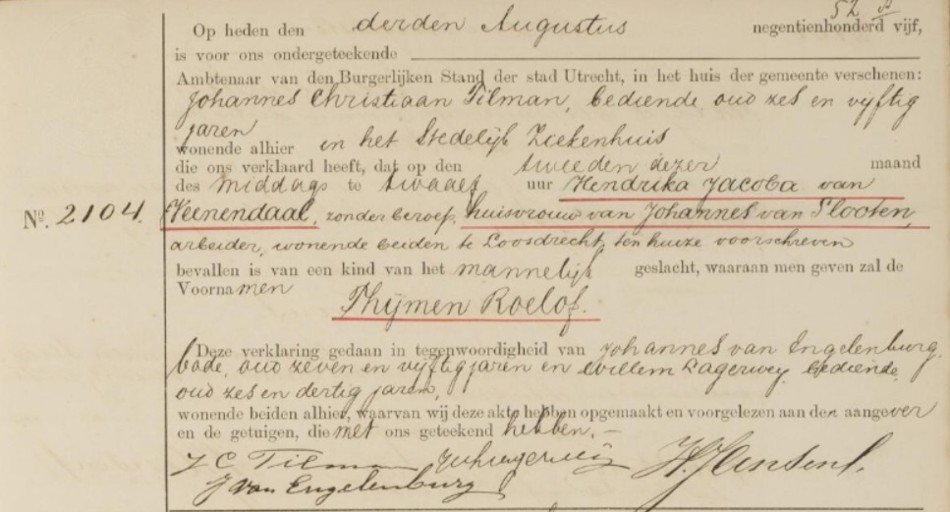 52
Op heden den derden Augustus negentienhonderd vijf,
is voor ons ondergeteekende
Ambtenaar van den Burgerlijken Stand der stad Utrecht, in het huis der gemeente verschenen:
Johannes Christiaan Tilman, bediende oud zes en vijftig
jaren
wonende alhier in het Stedelijk Ziekenhuis
die ons verklaard heeft, dat op den tweeden dezer maand
des middags te twaalf uur Hendrika Jacoba van
No. 2104. Veenendaal, zonder beroep, huisvrouw van Johannes van Slooten,
arbeider, wonende beiden te Loosdrecht, ten huize voorschreven
bevallen is van een kind van het mannelijk geslacht, waaraan men geven zal de
Voornamen
Thijmen Roelof.
Deze verklaring gedaan in tegenwoordigheid van Johannes van Ingelenburg,
bode, oud zeven en vijftig jaren en Willem Lagerwey, bediende,
oud zes en dertig jaren,
wonende beiden alhier, waarvan wij deze akte hebben opgemaakt en voorgelezen aan den aangever
en de getuigen, die met ons geteekend hebben.
J C Tilman
J van Engelenburg